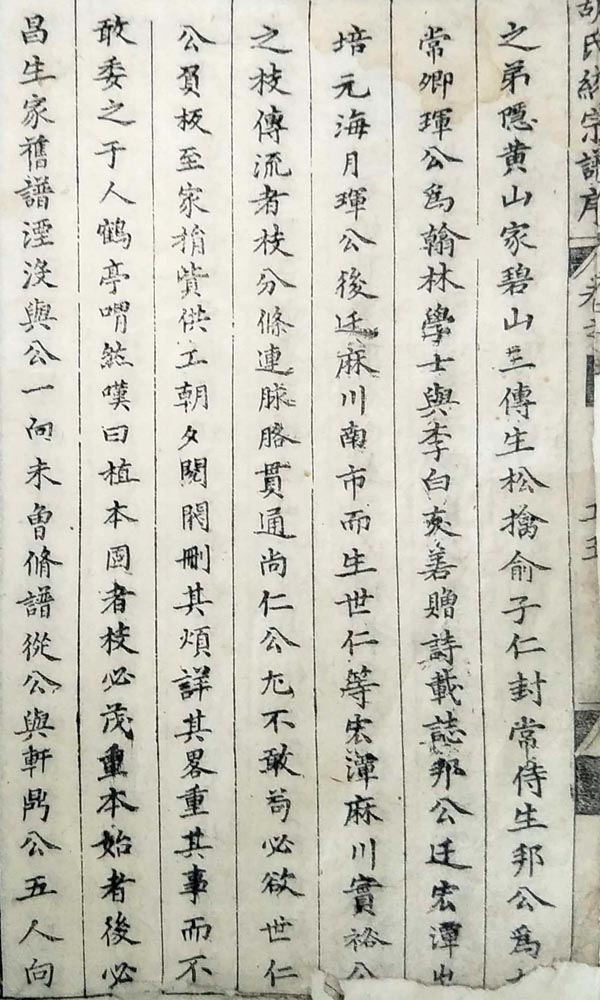 胡氏統宗譜序
之弟隱黄山家碧山三傳生松擒俞子仁封常侍生邦公爲
常卿琿公爲翰林學士與李白友善贈詩載誌邦公迁宏潭
培元海月琿公後迁麻川南市而生世仁等宏潭麻川實裕公
之枝傳流者枝分條連脉胳貫通尚仁公尤不敢苟必欲世仁
公貟板至家捐貲供工朝夕閱閱刪其煩詳其畧重其事而不
敢委之于人鶴亭喟然嘆曰植本固者枝必茂重本始者後必
昌生家舊譜湮没與公一向未曾脩譜從公與軒鼎公五人向